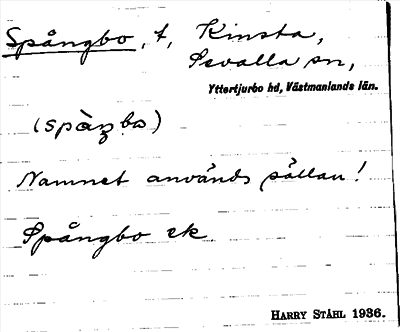 Spångbo, t, Kinsta,
Sevalla sn,
Yttertjurbo hd, Västmanlands län.
Namnet används sällan!
Spångbo ek
HARRY STÅHL 1936.